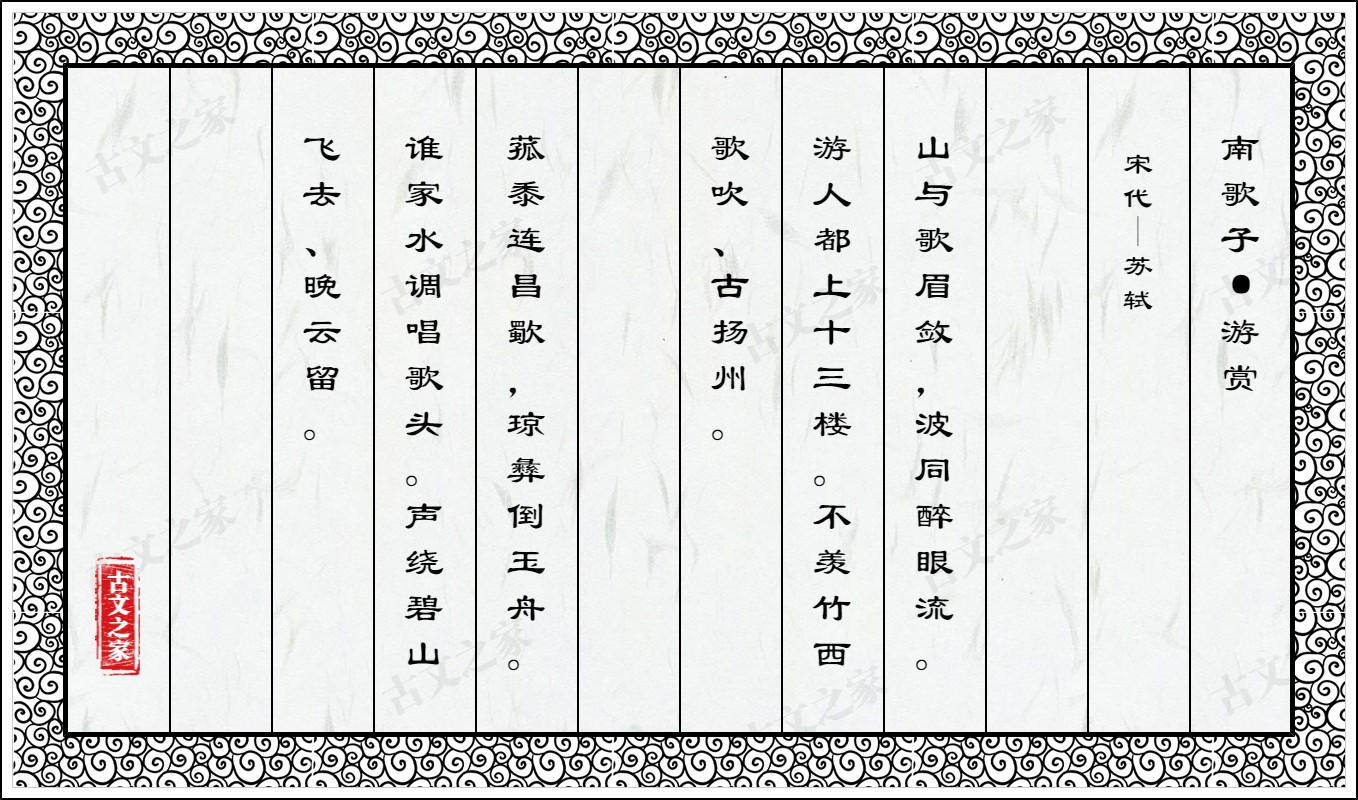 南歌子●游赏
宋代—苏轼
山与歌眉敛，波同醉眼流。
游人都上十三楼。不羡竹西
歌吹、古扬州。
菰黍连昌歜，琼彝倒玉舟。
谁家水调唱歌头。声绕碧山
飞去、晚云留。
古文之家